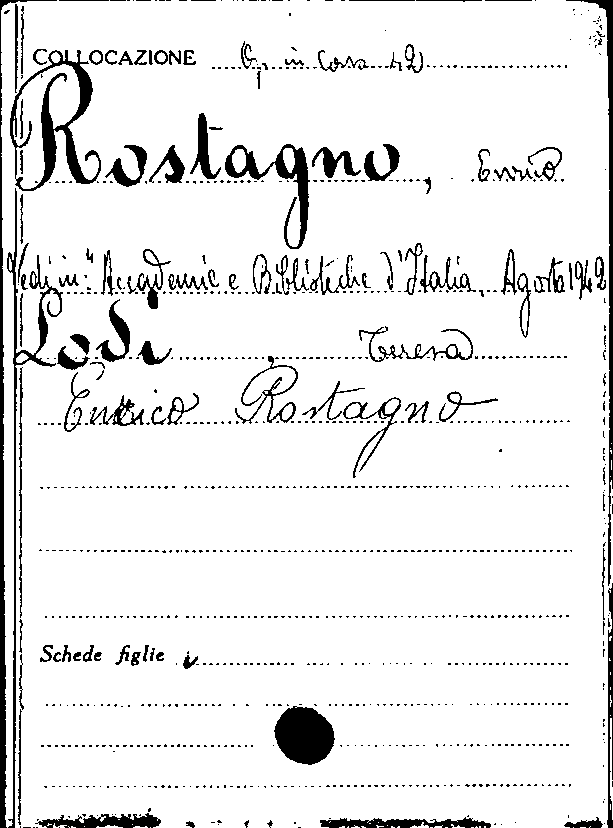 COLLOCAZIONE in Cors 42
Rostagno, Enrico
Vedi in: "Accademie e Biblioteche d'Italia, Agosto 1942
Lodi, Teresa
Enrico Rostagno
Schede figlie